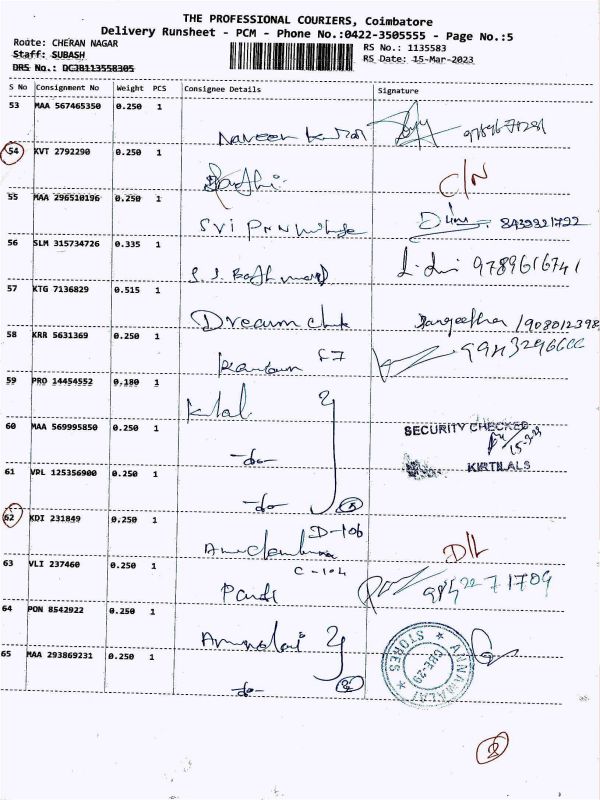 THE PROFESSIONAL COURIERS, Coimbatore
Delivery Runsheet - PCM - Phone No.:0422-3505555 - Page No.:5
Route: CHERAN NAGAR RS No.: 1135583
Staff: SUBASH RS Date: 15-Mar-2023
DRS No.: DCJB113558305
S No Consignment No Weight PCS Consignee Details Signature
53 MAA 567465350 0.250 1
Naveen Kumar
54 KVT 2792290 0.250 1
C/N
55 MAA 296510196 0.250 1
8439321722
56 SLM 315734726 0.335 1
9789616741
57 KTG 7136829 0.515 1
Dream
Sangeetha /908012398
58 KRR 5631369 0.250 1
F7
59 PRO 14454552 0.180 1
60 MAA 569995850 0.250 1
SECURITY CHECKED
-do-
KIRTILALS
61 VPL 125356900 0.250 1
-do-
62 KDI 231849 0.250 1
D-106
D/L
63 VLI 237460 0.250 1
C-104
984 22 71709
64 PON 8542922 0.250 1
65 MAA 293869231 0.250 1
ANNAMALAI STORES
CBE-29
-do-
2